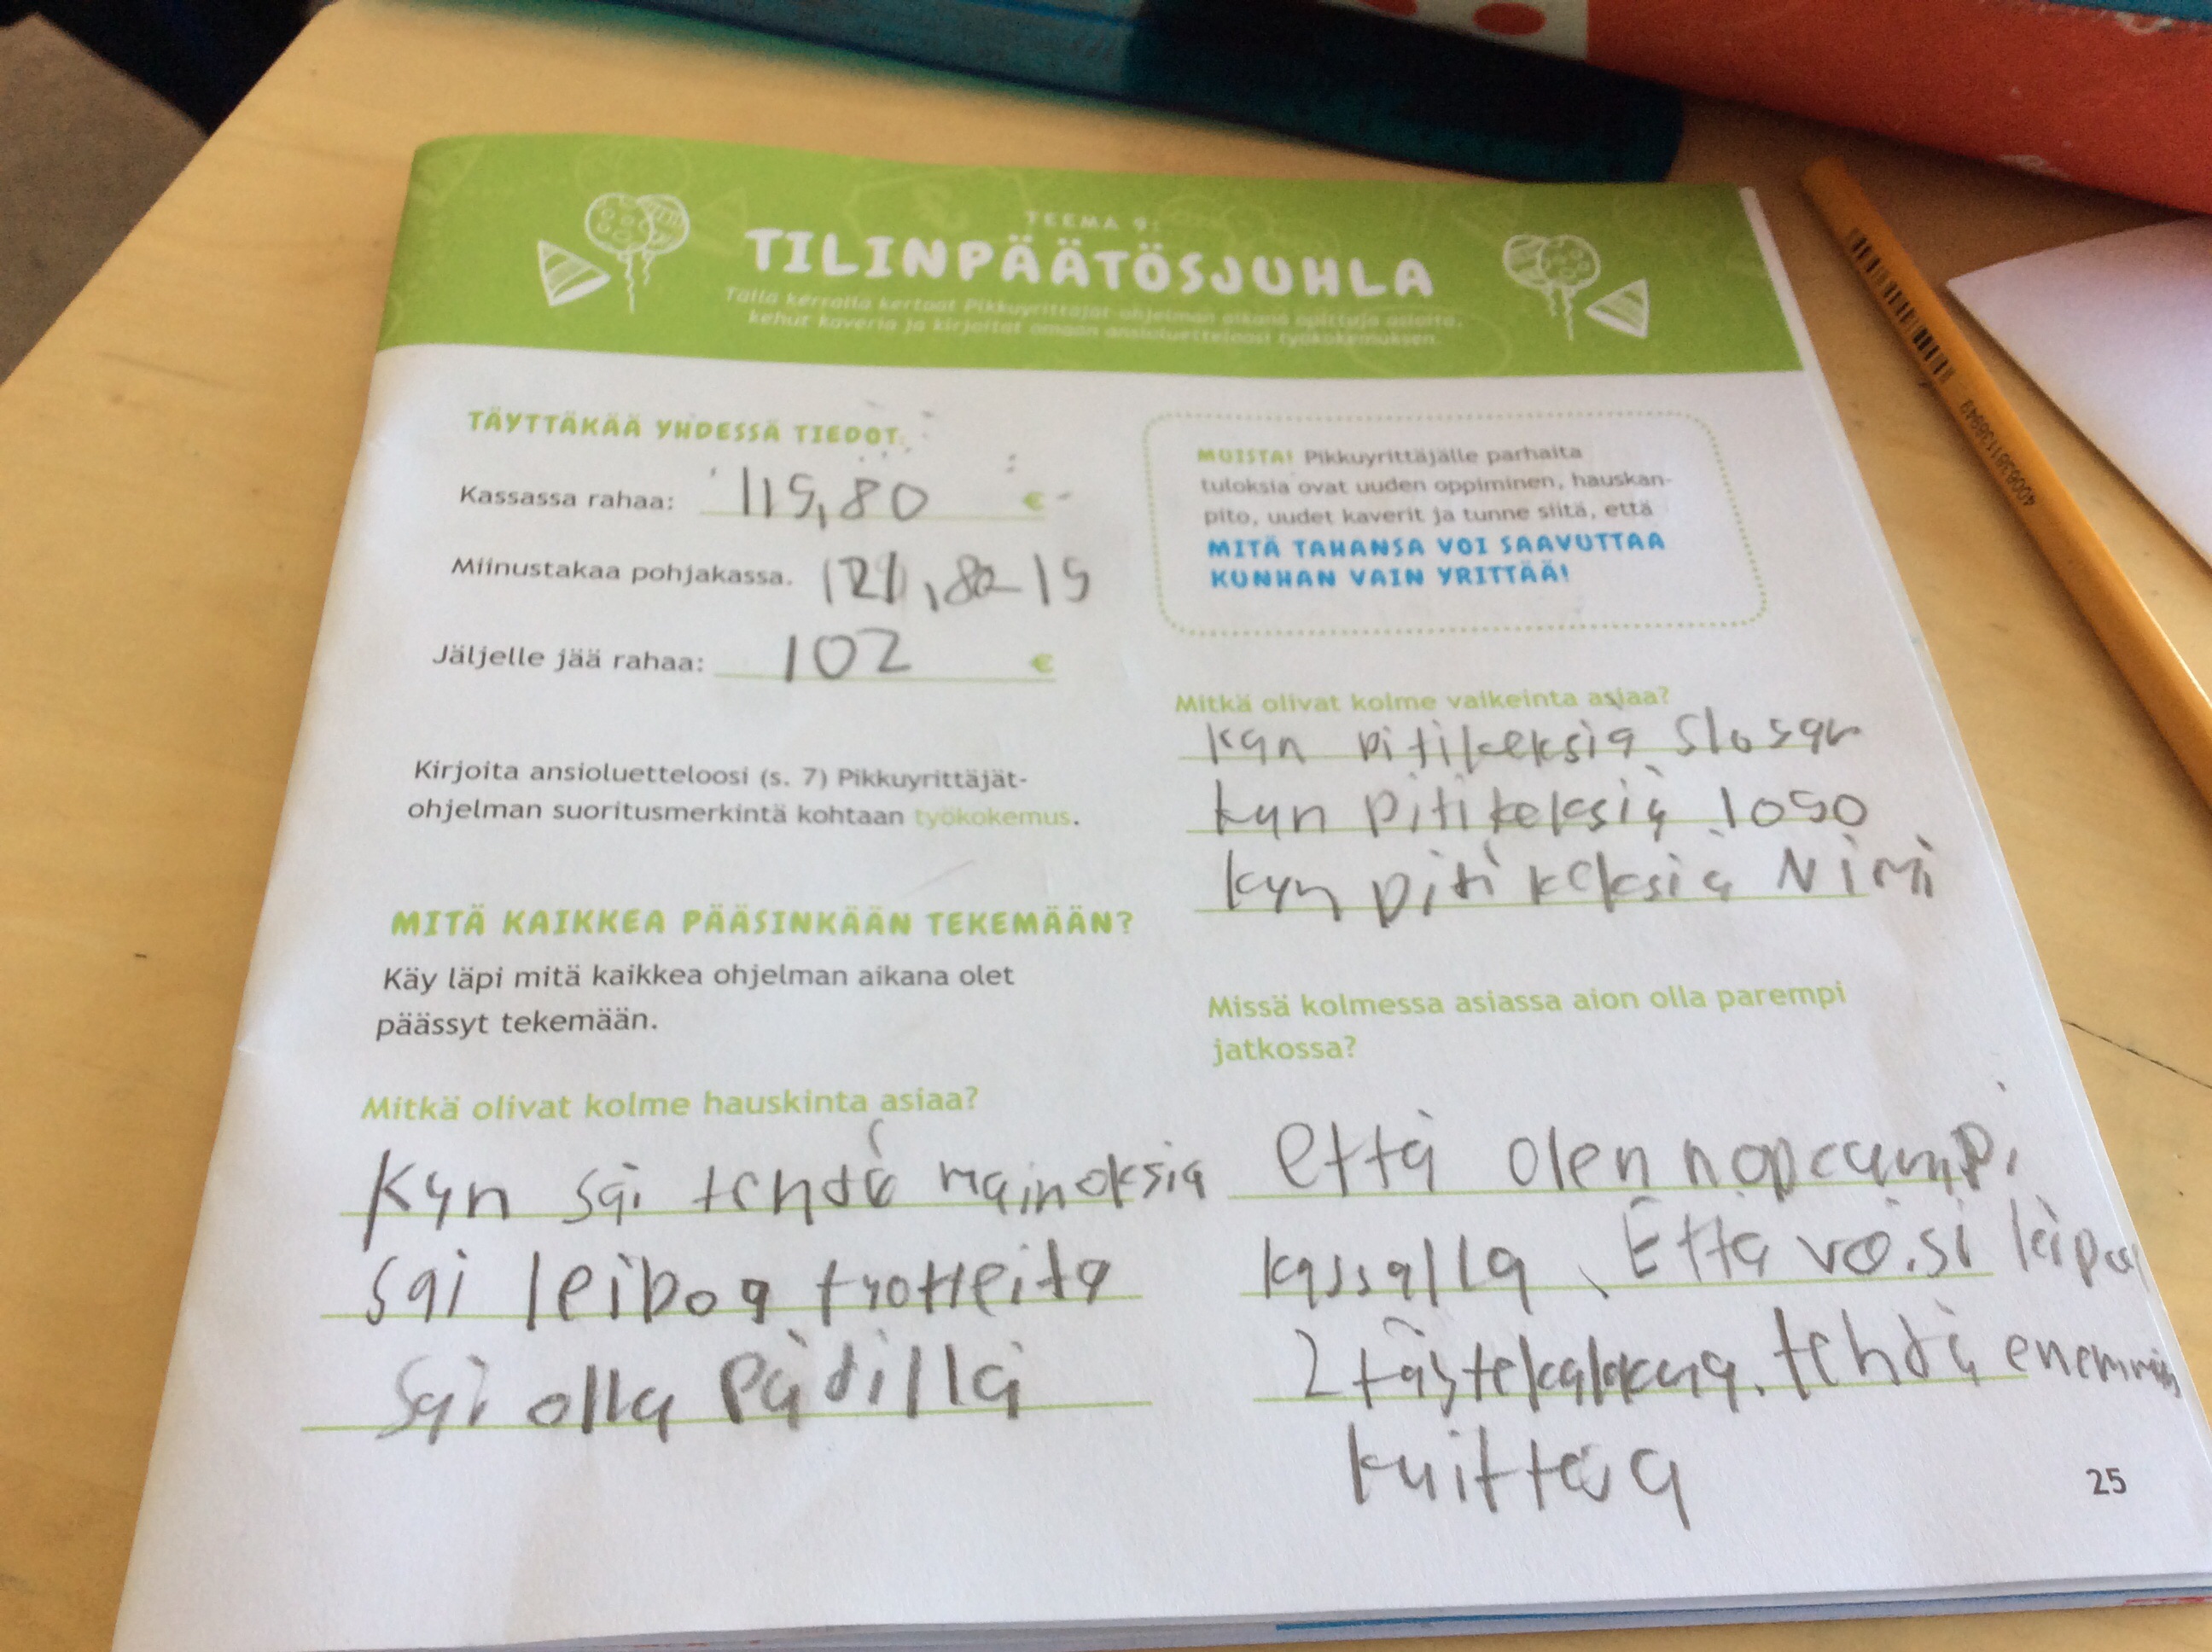 TEEMA 9:
TILINPÄÄTÖSJUHLA
Tällä kerralla kertaat Pikkuyrittäjät-ohjelman aikana opittuja asioita,
kehut kaveria ja kirjoitat omaan ansioluetteloosi työkokemuksen.
TÄYTTÄKÄÄ YHDESSÄ TIEDOT
Kassassa rahaa: 115,80 €
Miinustakaa pohjakassa. 121,82-15
Jäljelle jää rahaa: 102 €
Kirjoita ansioluetteloosi (s. 7) Pikkuyrittäjät-
ohjelman suoritusmerkintä kohtaan työkokemus.
MITÄ KAIKKEA PÄÄSINKÄÄN TEKEMÄÄN?
Käy läpi mitä kaikkea ohjelman aikana olet
päässyt tekemään.
Mitkä olivat kolme hauskinta asiaa?
Kun sai tehdä mainoksia
sai leiboa tuotteita
sai olla pädillä
MUISTA! Pikkuyrittäjälle parhaita
tuloksia ovat uuden oppiminen, hauskan-
pito, uudet kaverit ja tunne siitä, että
MITÄ TAHANSA VOI SAAVUTTAA
KUNHAN VAIN YRITTÄÄ!
Mitkä olivat kolme vaikeinta asiaa?
kun piti keksiä
kun piti keksiä logo
kun piti keksiä Nimi
Missä kolmessa asiassa aion olla parempi
jatkossa?
että olen nopeampi
kassalla. Että voisi
2 täytekakkua. tehdä enemmän
kuitteja
25
4006381138949